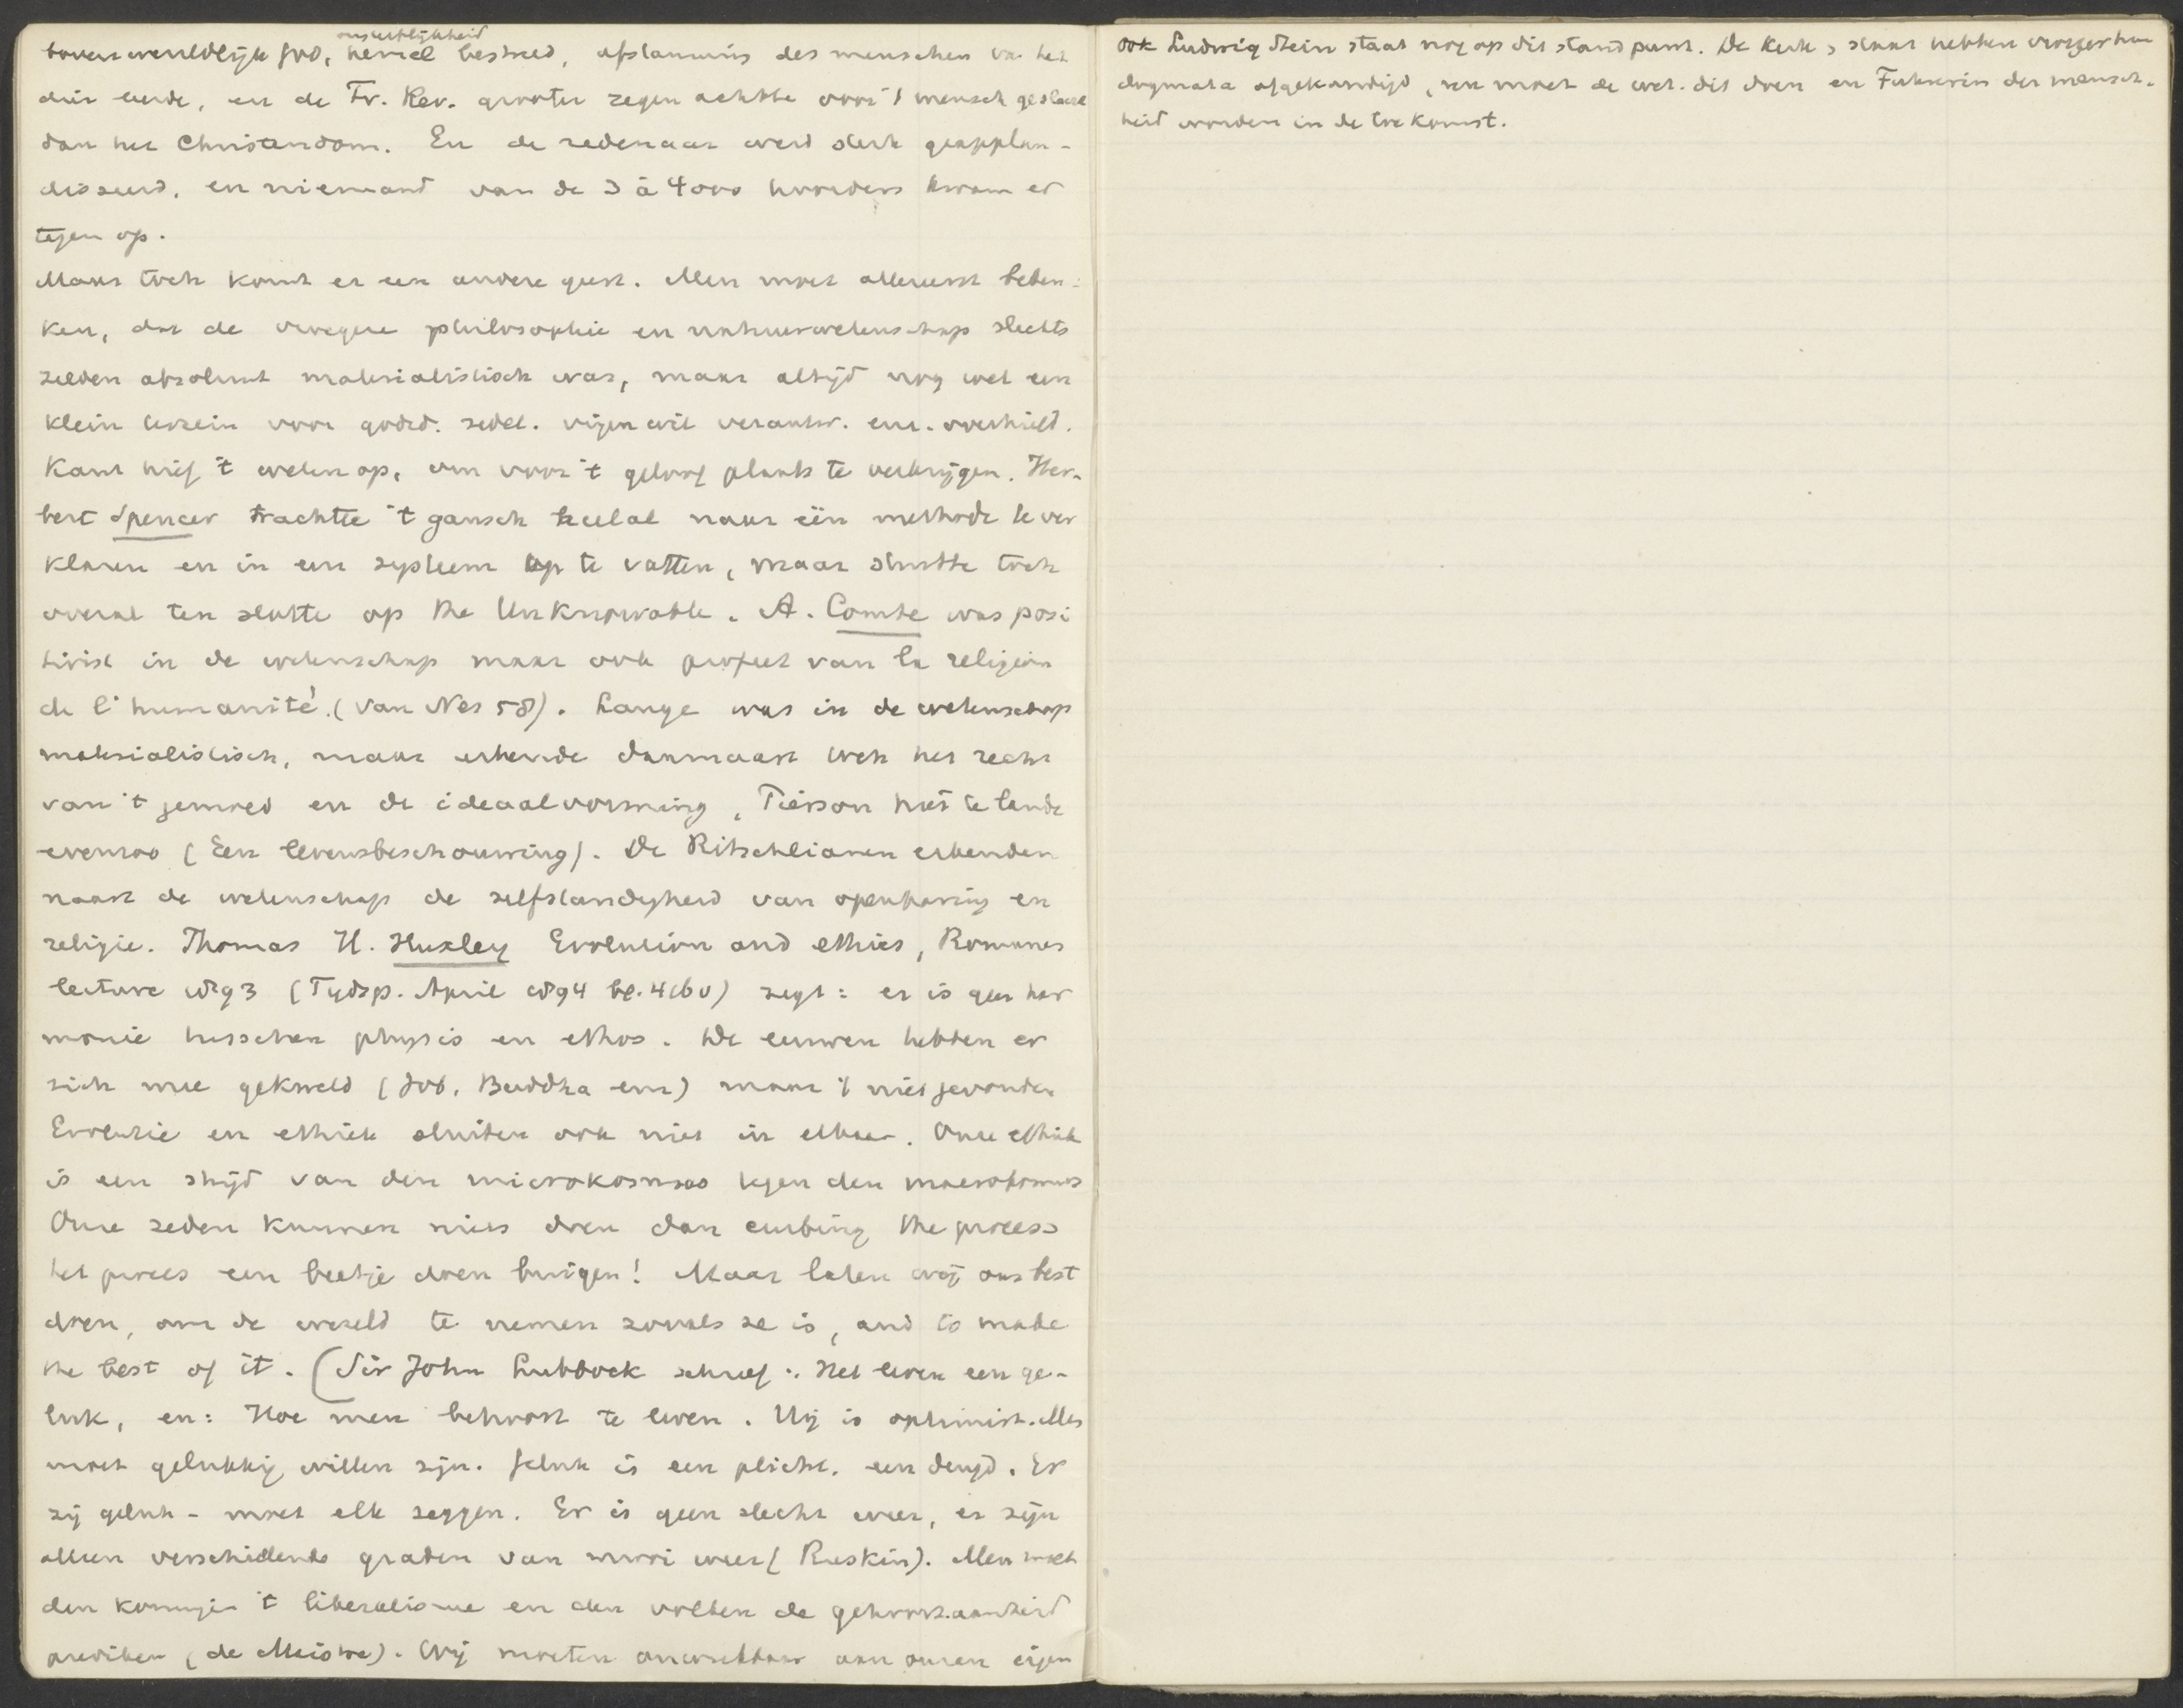 onsterflijkheid
bovenwereldlijk God, hemel bestreed, afstamming des menschen van het
dier leerde, en de Fr. Rev. grooter zegen achtte voor 't menschgeslacht
dan het Christendom. En de redenaar werd sterk geapplau-
disseerd, en niemand van de 3 à 4000 hoorders kwam er
tegen op.
Maar toch komt er een andere geest. Men moet allereerst beden-
ken, dat de vroegere philosophie en natuurwetenschap slechts
zelden absoluut materialistisch was, maar altijd nog wel een
klein terrein voor godsd. zedel. vrijen wil verantw. enz. overhield.
Kant hief 't weten op, om voor 't geloof plaats te verkrijgen. Her-
bert Spencer trachtte 't gansch heelal naar één methode te ver
klaren en in een systeem op te vatten, maar stuitte toch
overal ten slotte op the Unknowable. A. Comte was posi
tivist in de wetenschap maar ook profeet van la religion
de l'humanité. (van Nes 58). Lange was in de wetenschap
materialistisch, maar erkende daarnaast toch het recht
van 't gemoed en de ideaalvorming, Pierson hier te lande
evenzoo (Een levensbeschouwing). De Ritschlianen erkenden
naast de wetenschap de zelfstandigheid van openbaring en
religie. Thomas H. Huxley Evolution and ethics, Romanes
lecture 1893 (Tijdsp. April 1894 bl. 460) zegt: er is geen har
monie tusschen physis en ethos. De eeuwen hebben er
zich mee gekweld (Job, Buddha enz) maar 't niet gevonden
Evolutie en ethiek sluiten ook niet in elkaar. Onze ethiek
is een strijd van den microkosmos tegen den macrokosmos
Onze zeden kunnen niets doen dan curbing the process
het proces een beetje doen buigen! Maar laten wij ons best
doen, om de wereld te nemen zooals ze is, and to make
the best of it. (Sir John Lubbock schreef: Het leven een ge-
luk, en: Hoe men behoort te leven. Hij is optimist. Men
moet gelukkig willen zijn. Geluk is een plicht, een deugd. Er
zij geluk - moet elk zeggen. Er is geen slecht weer, er zijn
alleen verschillende graden van mooi weer (Ruskin). Men moet
den koningen 't liberalisme en den volken de gehoorzaamheid
prediken (de Maistre). Wij moeten onwrikbaar aan onzen eigen
Ook Ludwig Stein staat nog op dit standpunt. De Kerk, staat hebben vroeger hun
dogmata afgekondigd, nu moet de wet. dit doen en Führerin der mensch-
heid worden in de toekomst.